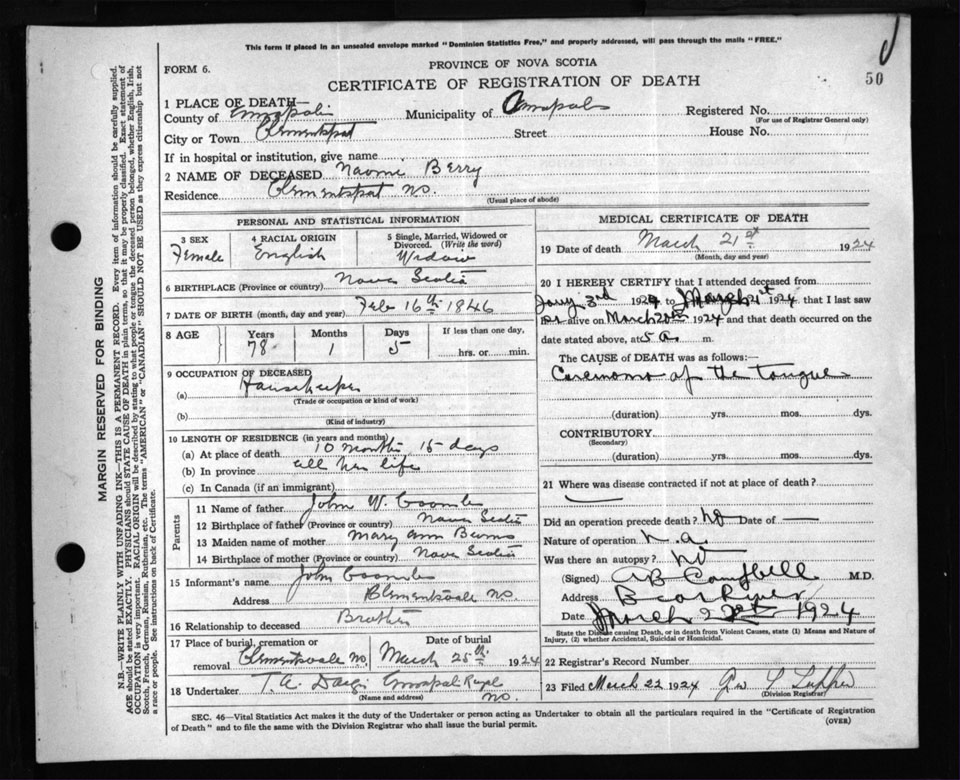 This form if placed in an unsealed envelope marked "Dominion Statistics Free," and properly addressed, will pass through the mails "FREE."
50
FORM 6.
PROVINCE OF NOVA SCOTIA
CERTIFICATE OF REGISTRATION OF DEATH
1 PLACE OF DEATH—
County of Annapolis Municipality of Annapolis Registered No.
(For use of Registrar General only)
City or Town Clementsport Street House No.
If in hospital or institution, give name
2 NAME OF DECEASED Naomi Berry
Residence Clementsport N.S.
(Usual place of abode)
PERSONAL AND STATISTICAL INFORMATION
3 SEX
Female
4 RACIAL ORIGIN
English
5 Single, Married, Widowed or Divorced. (Write the word)
Widow
6 BIRTHPLACE (Province or country) Nova Scotia
7 DATE OF BIRTH (month, day and year) Feb 16th 1846
8 AGE Years Months Days If less than one day,
78 1 5 hrs. or min.
9 OCCUPATION OF DECEASED
(a) Housekeeper
(Trade or occupation or kind of work)
(b)
(Kind of industry)
10 LENGTH OF RESIDENCE (in years and months)
(a) At place of death 10 months, 15 days
(b) In province all her life
(c) In Canada (if an immigrant)
Parents
11 Name of father John W. Coombs
12 Birthplace of father (Province or country) Nova Scotia
13 Maiden name of mother Mary Ann Burns
14 Birthplace of mother (Province or country) Nova Scotia
15 Informant's name John Coombs
Address Clementsvale N.S.
16 Relationship to deceased Brother
17 Place of burial, cremation or removal Clementsvale N.S.
Date of burial
March 25th 1924
18 Undertaker T. A. Annapolis Royal
(Name and address) N.S.
MEDICAL CERTIFICATE OF DEATH
19 Date of death March 21st 1924
(Month, day and year)
20 I HEREBY CERTIFY that I attended deceased from
Jany 3rd 1924 to March 21st 1924 that I last saw
her alive on March 20th 1924 and that death occurred on the
date stated above, at 5 a. m.
The CAUSE of DEATH was as follows:—
Carcinoma of the tongue
(duration) yrs. mos. dys.
CONTRIBUTORY
(Secondary)
(duration) yrs. mos. dys.
21 Where was disease contracted if not at place of death?
—
Did an operation precede death? No Date of —
Nature of operation n.a.
Was there an autopsy? No
(Signed) A B Campbell M.D.
Address Bear River
Date March 22nd 1924
State the Disease causing Death, or in death from Violent Causes, state (1) Means and Nature of
Injury, (2) whether Accidental, Suicidal or Homicidal.
22 Registrar's Record Number
23 Filed March 22 1924
(Division Registrar)
SEC. 46—Vital Statistics Act makes it the duty of the Undertaker or person acting as Undertaker to obtain all the particulars required in the "Certificate of Registration
of Death" and to file the same with the Division Registrar who shall issue the burial permit.
(OVER)
MARGIN RESERVED FOR BINDING
N.B.—WRITE PLAINLY WITH UNFADING INK—THIS IS A PERMANENT RECORD. Every item of information should be carefully supplied.
AGE should be stated EXACTLY. PHYSICIANS should STATE CAUSE OF DEATH in plain terms, so that it may be properly classified. Exact statement of
OCCUPATION is very important. RACIAL ORIGIN will be described by stating to what people or tongue the deceased person belonged, whether English, Irish,
Scotch, French, German, Russian, Ruthenian, etc. The terms "AMERICAN" or "CANADIAN" SHOULD NOT BE USED as they express citizenship but not
a race or people. See instructions on back of Certificate.